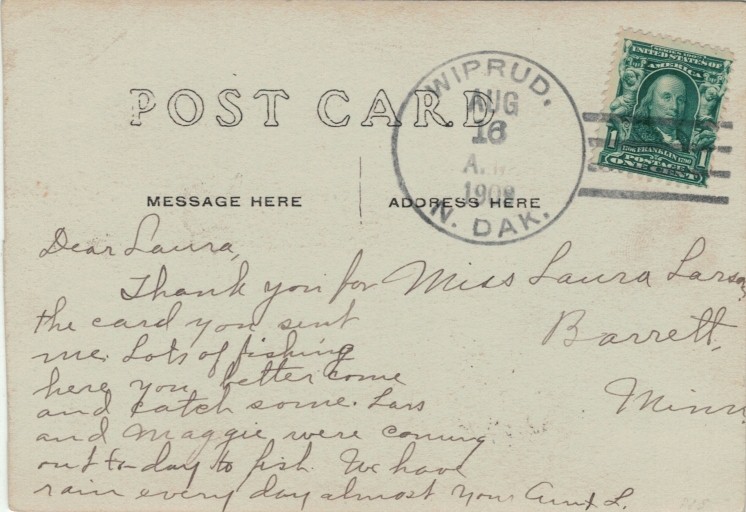 POST CARD
WIPRUD.
AUG
16
A.M.
1908
N. DAK.
SERIES 1902
UNITED STATES OF
AMERICA
1 1706 FRANKLIN 1790 1
POSTAGE
ONE CENT
MESSAGE HERE
ADDRESS HERE
Dear Laura,
Thank you for
the card you sent
me. Lots of fishing
here you better come
and catch some. Lars
and Maggie were coming
out to-day to fish. We have
rain every day almost Your Aunt L.
Miss Laura Larson
Barrett,
Minn